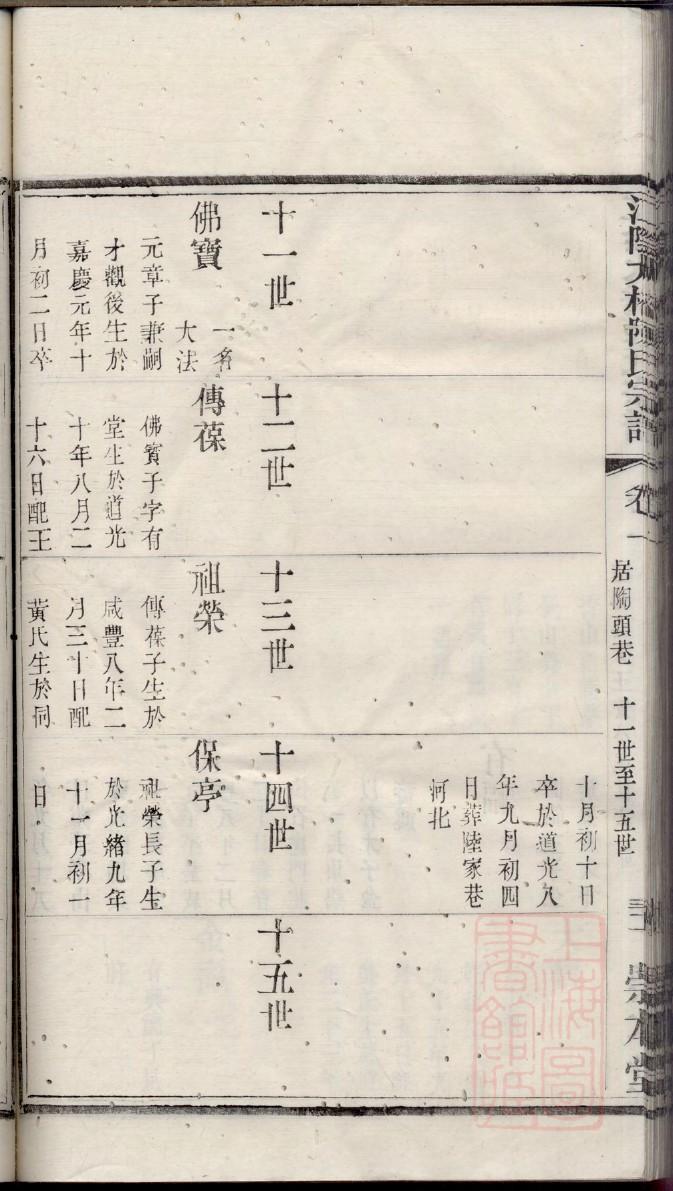 江陰大橋陳氏宗譜
卷一
居陶頭巷
十一世至十五世
崇本堂
十月初十日
卒於道光八
年九月初四
日葬陸家巷
河北
十一世
佛寶
一名
大法
元章子兼嗣
才觀後生於
嘉慶元年十
月初二日卒
十二世
傳葆
佛寶子字有
堂生於道光
十年八月二
十六日配王
十三世
祖榮
傳葆子生於
咸豐八年二
月三十日配
黃氏生於同
十四世
保亭
祖榮長子生
於光緒九年
十一月初一
日
十五世
上海圖
書館藏